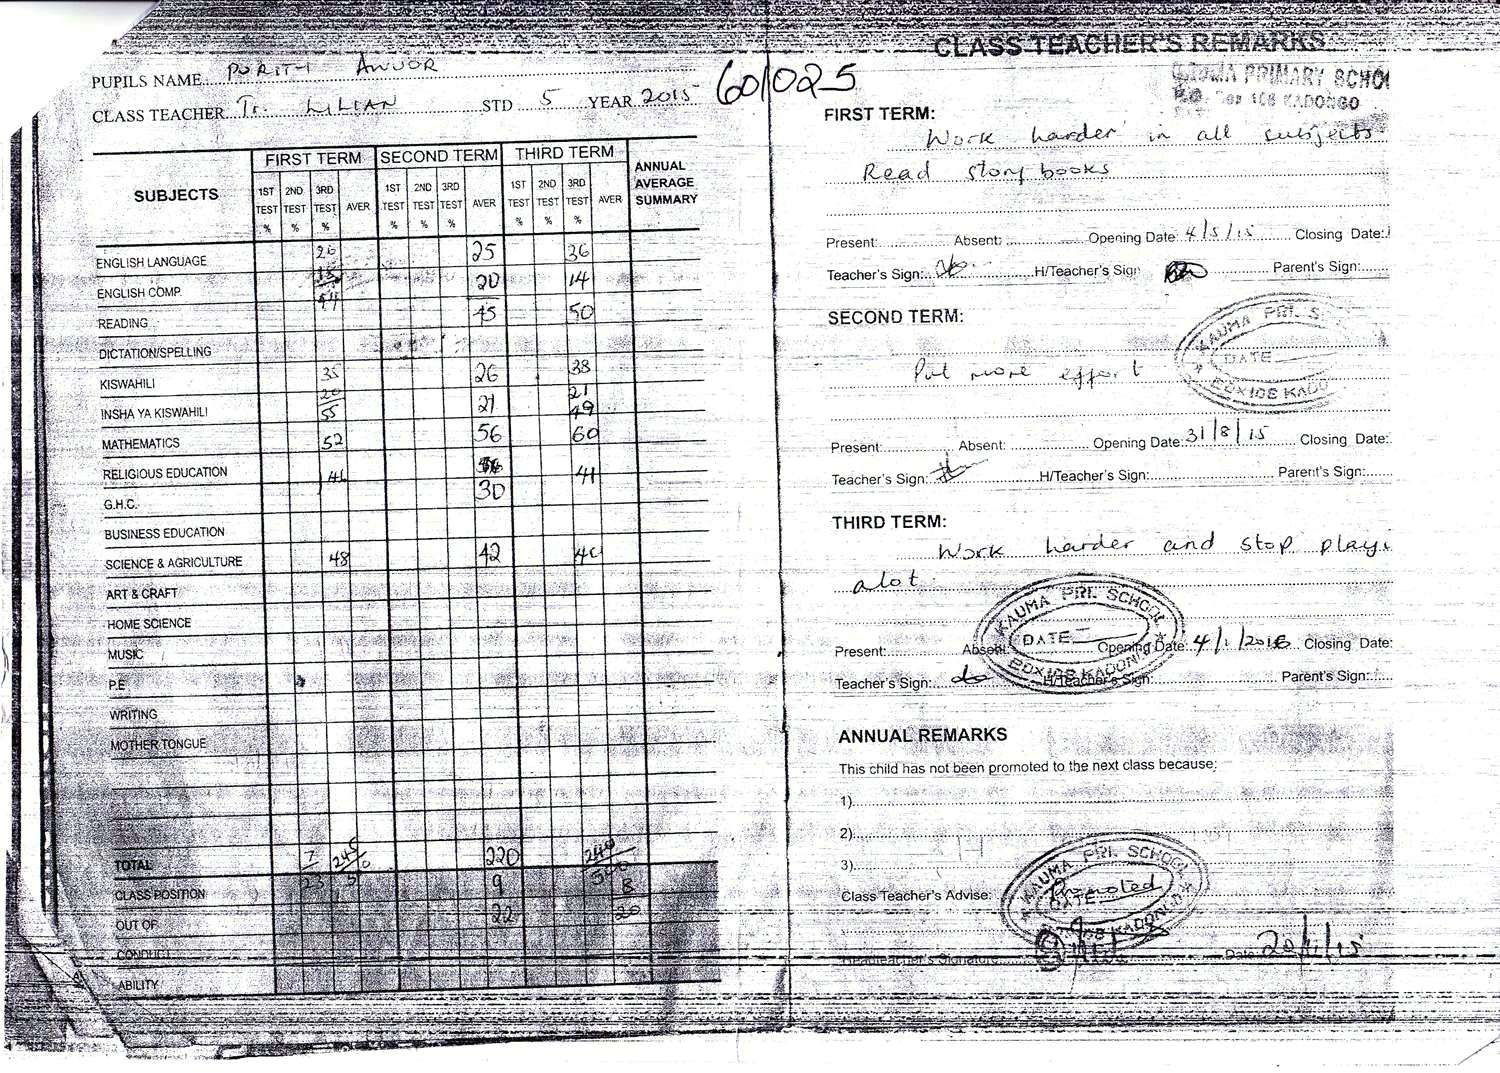 PUPILS NAME PURITY ANYOR
CLASS TEACHER Tr. LILIAN STD 5 YEAR 2015
601025
SUBJECTS FIRST TERM SECOND TERM THIRD TERM ANNUAL AVERAGE SUMMARY
1ST TEST % 2ND TEST % 3RD TEST % AVER 1ST TEST % 2ND TEST % 3RD TEST % AVER 1ST TEST % 2ND TEST % 3RD TEST % AVER
ENGLISH LANGUAGE 26 25 36
ENGLISH COMP. 20 14
READING 45 50
DICTATION/SPELLING
KISWAHILI 35 26 38
INSHA YA KISWAHILI 20 55 21 21 49
MATHEMATICS 52 56 60
RELIGIOUS EDUCATION 41 41
G.H.C. 30
BUSINESS EDUCATION
SCIENCE & AGRICULTURE 48 42
ART & CRAFT
HOME SCIENCE
MUSIC
P.E
WRITING
MOTHER TONGUE
TOTAL 7 245 220 240
CLASS POSITION 23 9 500 8
OUT OF 22 20
CONDUCT
ABILITY
CLASS TEACHER'S REMARKS
KAUMA PRIMARY SCHOO
P.O. Box 108 KADONGO
FIRST TERM:
Work harder in all subjects
Read story books
Present: Absent: Opening Date: 4/5/15 Closing Date:
Teacher's Sign: H/Teacher's Sign Parent's Sign:
SECOND TERM:
KAUMA PRI. S
DATE
BOX 108 KADO
Put more effort
Present: Absent: Opening Date: 31/8/15 Closing Date:
Teacher's Sign: H/Teacher's Sign: Parent's Sign:
THIRD TERM:
Work harder and stop playi
alot
KAUMA PRI. SCHOOL
DATE
BOX 108 KADON
Present: Absent: Opening Date: 4/1/2016 Closing Date:
Teacher's Sign: H/Teacher's Sign: Parent's Sign:
ANNUAL REMARKS
This child has not been promoted to the next class because:
1)
2)
3)
KAUMA PRI. SCHOOL
Class Teacher's Advise: Promoted
DATE
Headteacher's Signature Date: 20/11/15